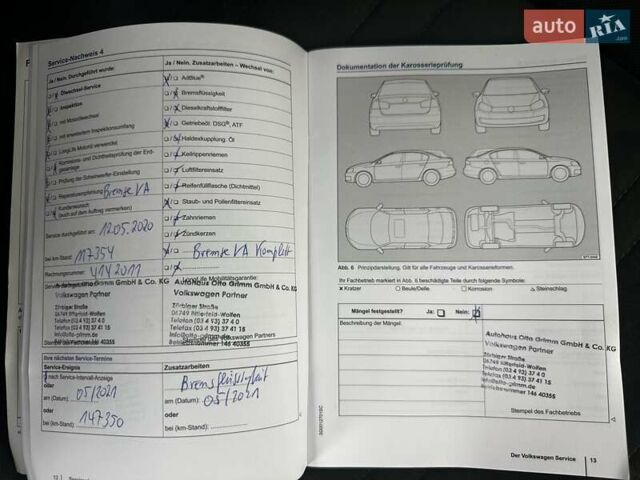 auto RIA
.com
Service-Nachweis 4
Ja / Nein, Durchgeführt wurde:
Ölwechsel-Service
Inspektion
mit Motorölwechsel
mit erweitertem Inspektionsumfang
LongLife Motoröl verwendet
Korrosions- und Dichtheitsprüfung der Erdgasanlage
Prüfung der Scheinwerfer-Einstellung
Reparaturempfehlung Bremse VA
Kundenwunsch
(auch auf dem Auftrag vermerken)
Service durchgeführt am: 12.05.2020
bei km-Stand: 117354
Rechnungsnummer: 4142011
Ja / Nein, Zusatzarbeiten – Wechsel von:
AdBlue®
Bremsflüssigkeit
Dieselkraftstofffilter
Getriebeöl: DSG®, ATF
Haldexkupplung: Öl
Keilrippenriemen
Luftfiltereinsatz
Reifenfüllflasche (Dichtmittel)
Staub- und Pollenfiltereinsatz
Zahnriemen
Zündkerzen
Bremse VA Komplett
LongLife Mobilitätsgarantie:
Autohaus Otto Grimm GmbH & Co. KG
Volkswagen Partner
Zörbiger Straße
06749 Bitterfeld-Wolfen
Telefon (03 4 93) 37 4 0
Telefax (03 4 93) 37 41 15
info@otto-grimm.de
Betriebsnummer 146 40355
Ihre nächsten Service-Termine
Service-Ereignis
nach Service-Intervall-Anzeige
am (Datum): 05/2021
oder
147350
Zusatzarbeiten
Bremsflüssigkeit
am (Datum): 05/2021
oder
bei (km-Stand):
12
Dokumentation der Karosserieprüfung
Abb. 6 Prinzipdarstellung. Gilt für alle Fahrzeuge und Karosserieformen.
Ihr Fachbetrieb markiert in Abb. 6 beschädigte Teile durch folgende Symbole:
x Kratzer ○ Beule/Delle □ Korrosion △ Steinschlag
Mängel festgestellt? Ja: Nein:
Beschreibung der Mängel:
Autohaus Otto Grimm GmbH & Co. KG
Volkswagen Partner
Zörbiger Straße
06749 Bitterfeld-Wolfen
Telefon (03 4 93) 37 4 0
Telefax (03 4 93) 37 41 15
info@otto-grimm.de
Betriebsnummer 146 40355
Stempel des Fachbetriebs
Der Volkswagen Service 13